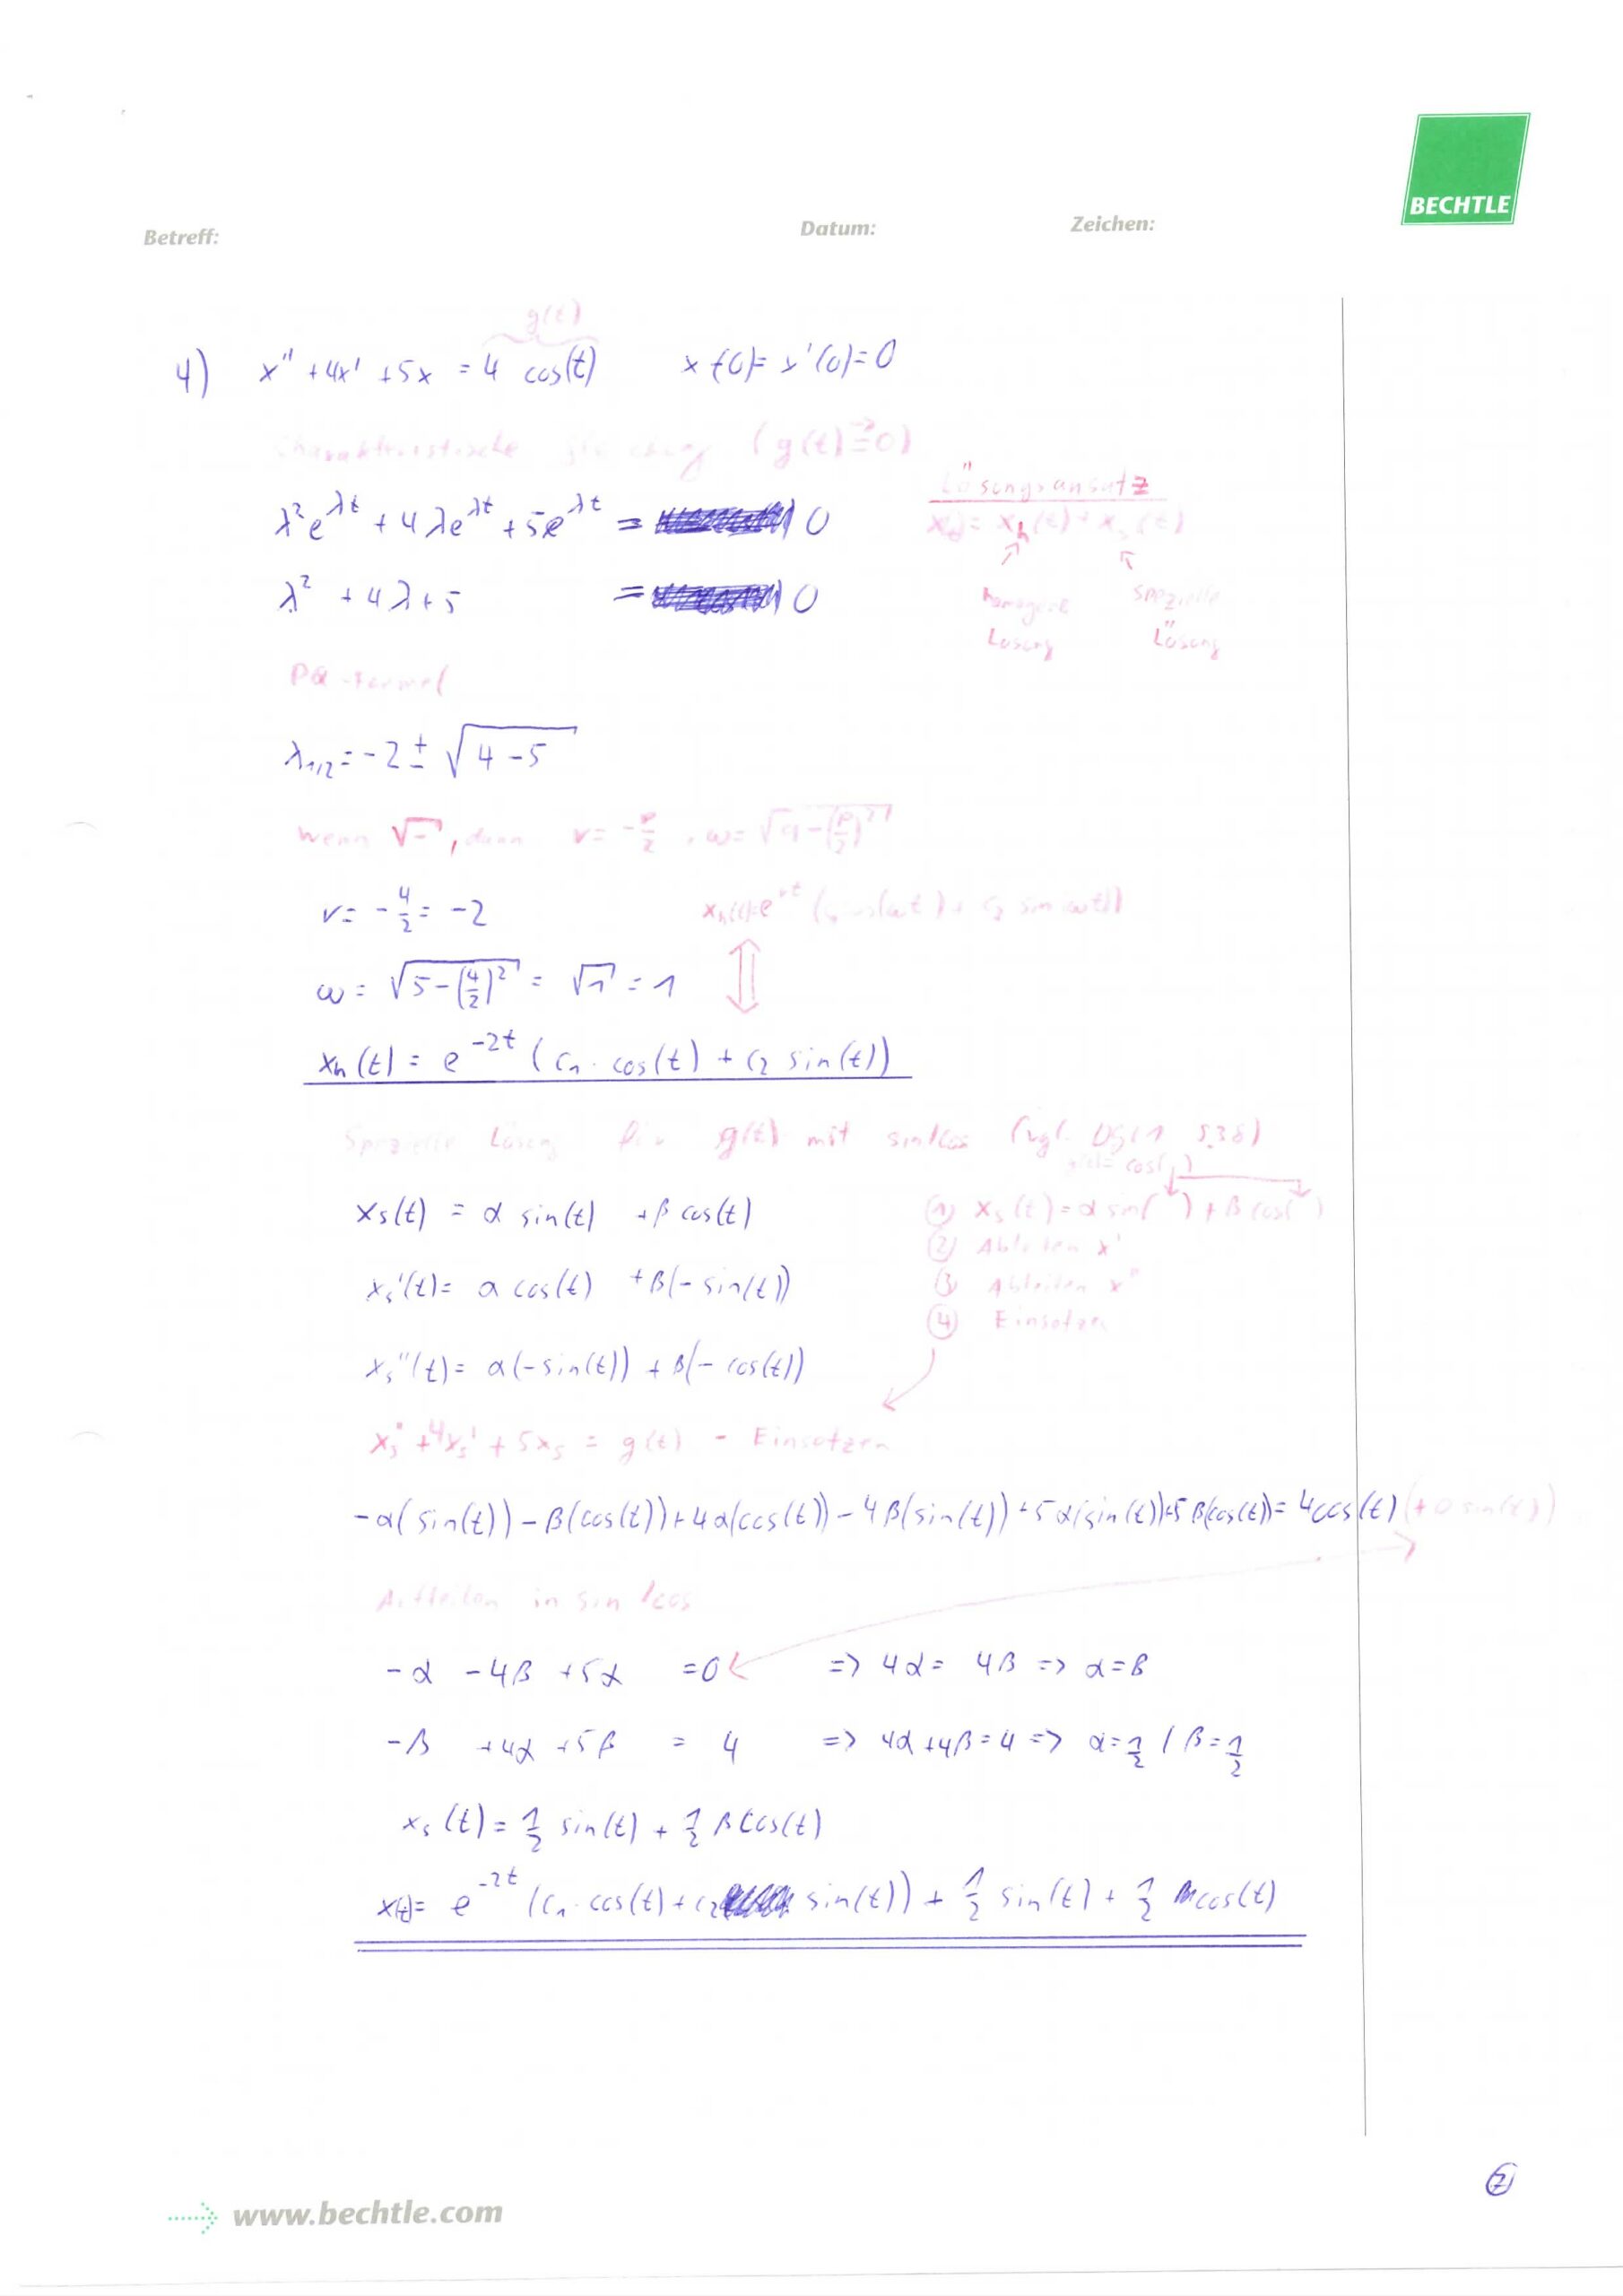 BECHTLE
Betreff: Datum: Zeichen:
g(t)
4) x'' + 4x' + 5x = 4 cos(t) x(0)= x'(0)=0
Charakteristische Gleichung (g(t) = 0)
λ²e^λt + 4λe^λt + 5e^λt = 0
Lösungsansatz
x(t) = xh(t) + xs(t)
λ² + 4λ + 5 = 0
homogene Lösung
spezielle Lösung
PQ-Formel
λ1/2 = -2 ± √(4-5)
Wenn √-, dann v = -p/2, ω = √(q-(p/2)²)
v = -4/2 = -2
xh(t)=e^vt (c1 cos(ωt) + c2 sin(ωt))
ω = √(5-(4/2)²) = √1 = 1
xh(t) = e^-2t (c1 · cos(t) + c2 sin(t))
Spezielle Lösung für g(t) mit sin/cos (vgl. DGL1 S.38)
g(t)= cos( )
xs(t) = α sin(t) + β cos(t)
① xs(t) = α sin( ) + β cos( )
② Ableiten x'
xs'(t) = α cos(t) + β(-sin(t))
③ Ableiten x''
④ Einsetzen
xs''(t) = α(-sin(t)) + β(-cos(t))
xs'' + 4xs' + 5xs = g(t) - Einsetzen
-α(sin(t)) - β(cos(t)) + 4α(cos(t)) - 4β(sin(t)) + 5α(sin(t)) + 5β(cos(t)) = 4cos(t) (+ 0 sin(t))
Aufteilen in sin/cos
-α -4β +5α =0 => 4α = 4β => α=β
-β +4α +5β = 4 => 4α+4β=4 => α=1/2 / β=1/2
xs(t) = 1/2 sin(t) + 1/2 β cos(t)
x(t)= e^-2t (c1 · cos(t) + c2 sin(t)) + 1/2 sin(t) + 1/2 cos(t)
⑦
www.bechtle.com